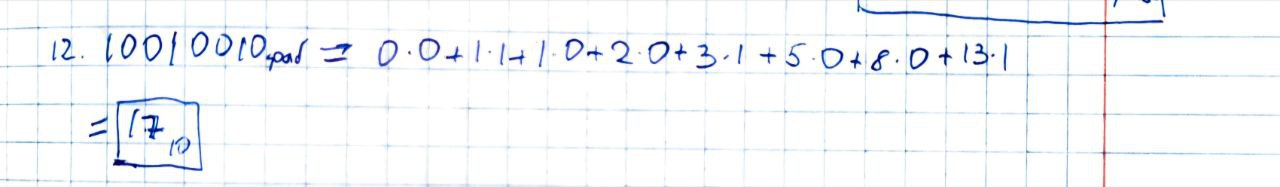 12. 10010010фиб = 0·0+1·1+1·0+2·0+3·1+5·0+8·0+13·1
= 17₁₀